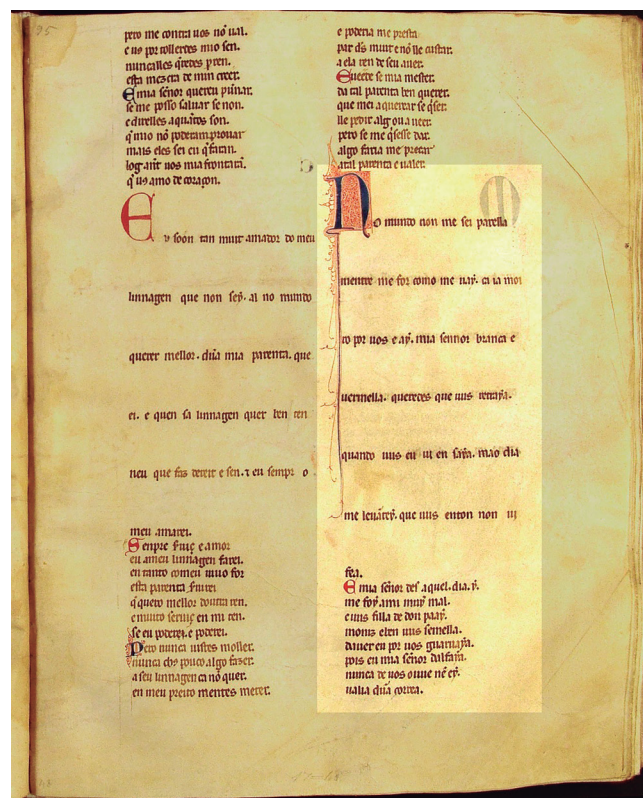 pero me contra uos nõ ual.
e us por tolledes mio sen.
nuncalles q̃redes p̃en.
esta mezcra de min creer.
E mia señor queren punnar.
se me posso saluar se non.
e dizelles a quãtos son.
q̃ mio nõ poderam prouar
mais eles sei eu q̃ faran.
log ant̃ uos mia frontarã.
q̃ us amo de coraçon.
E u soon tan muit amador do meu
linnagen que non sey. al no mundo
querer mellor. dũa mia parenta. que
ei. e quen sa linnagen quer ben ten
neu que faz dereit e sen. ⁊ eu sempr o
meu amarei.
Senpre s̃uiç e amor
eu ameu linnagen farei.
en tanto comeu uiuo for
esta parenta s̃uirei
q̃ quero mellor doutra ren.
e muito seruiç en mi ten.
se eu poder ei. e poderei.
Pero nunca uistes moller.
nunca chus pouco. algo fazer.
a seu linnagen ca nõ quer.
en meu preito mentes meter.
e poderia me prestar
par d̃s muit e nõ lle custar.
a ela ren de seu auer.
E uede se mia mester.
da tal parenta ben querer.
que mei a queixar se q̃ser.
lle pedir alg ou a ueer.
pero se me q̃sesse dar.
algo faria me preçar
atal parenta e ualer.
N o mundo non me sei parella
mentre me for como me uay. ca ia moi
ro por uos e ay. mia sennor branca e
uermella. queredes que uus retraya.
quando uus eu ui en saya. mao dia
me leuãtey. que uus enton non ui
fea.
E mia señor des aquel. dia. y.
me foy. ami muy mal.
e uus filla de don paay.
moniz e ben uus semella.
dauer eu por uos guaruaya.
pois eu mia señor dalfaya.
nunca de uos ouue nẽ ey.
ualia dũa correa.